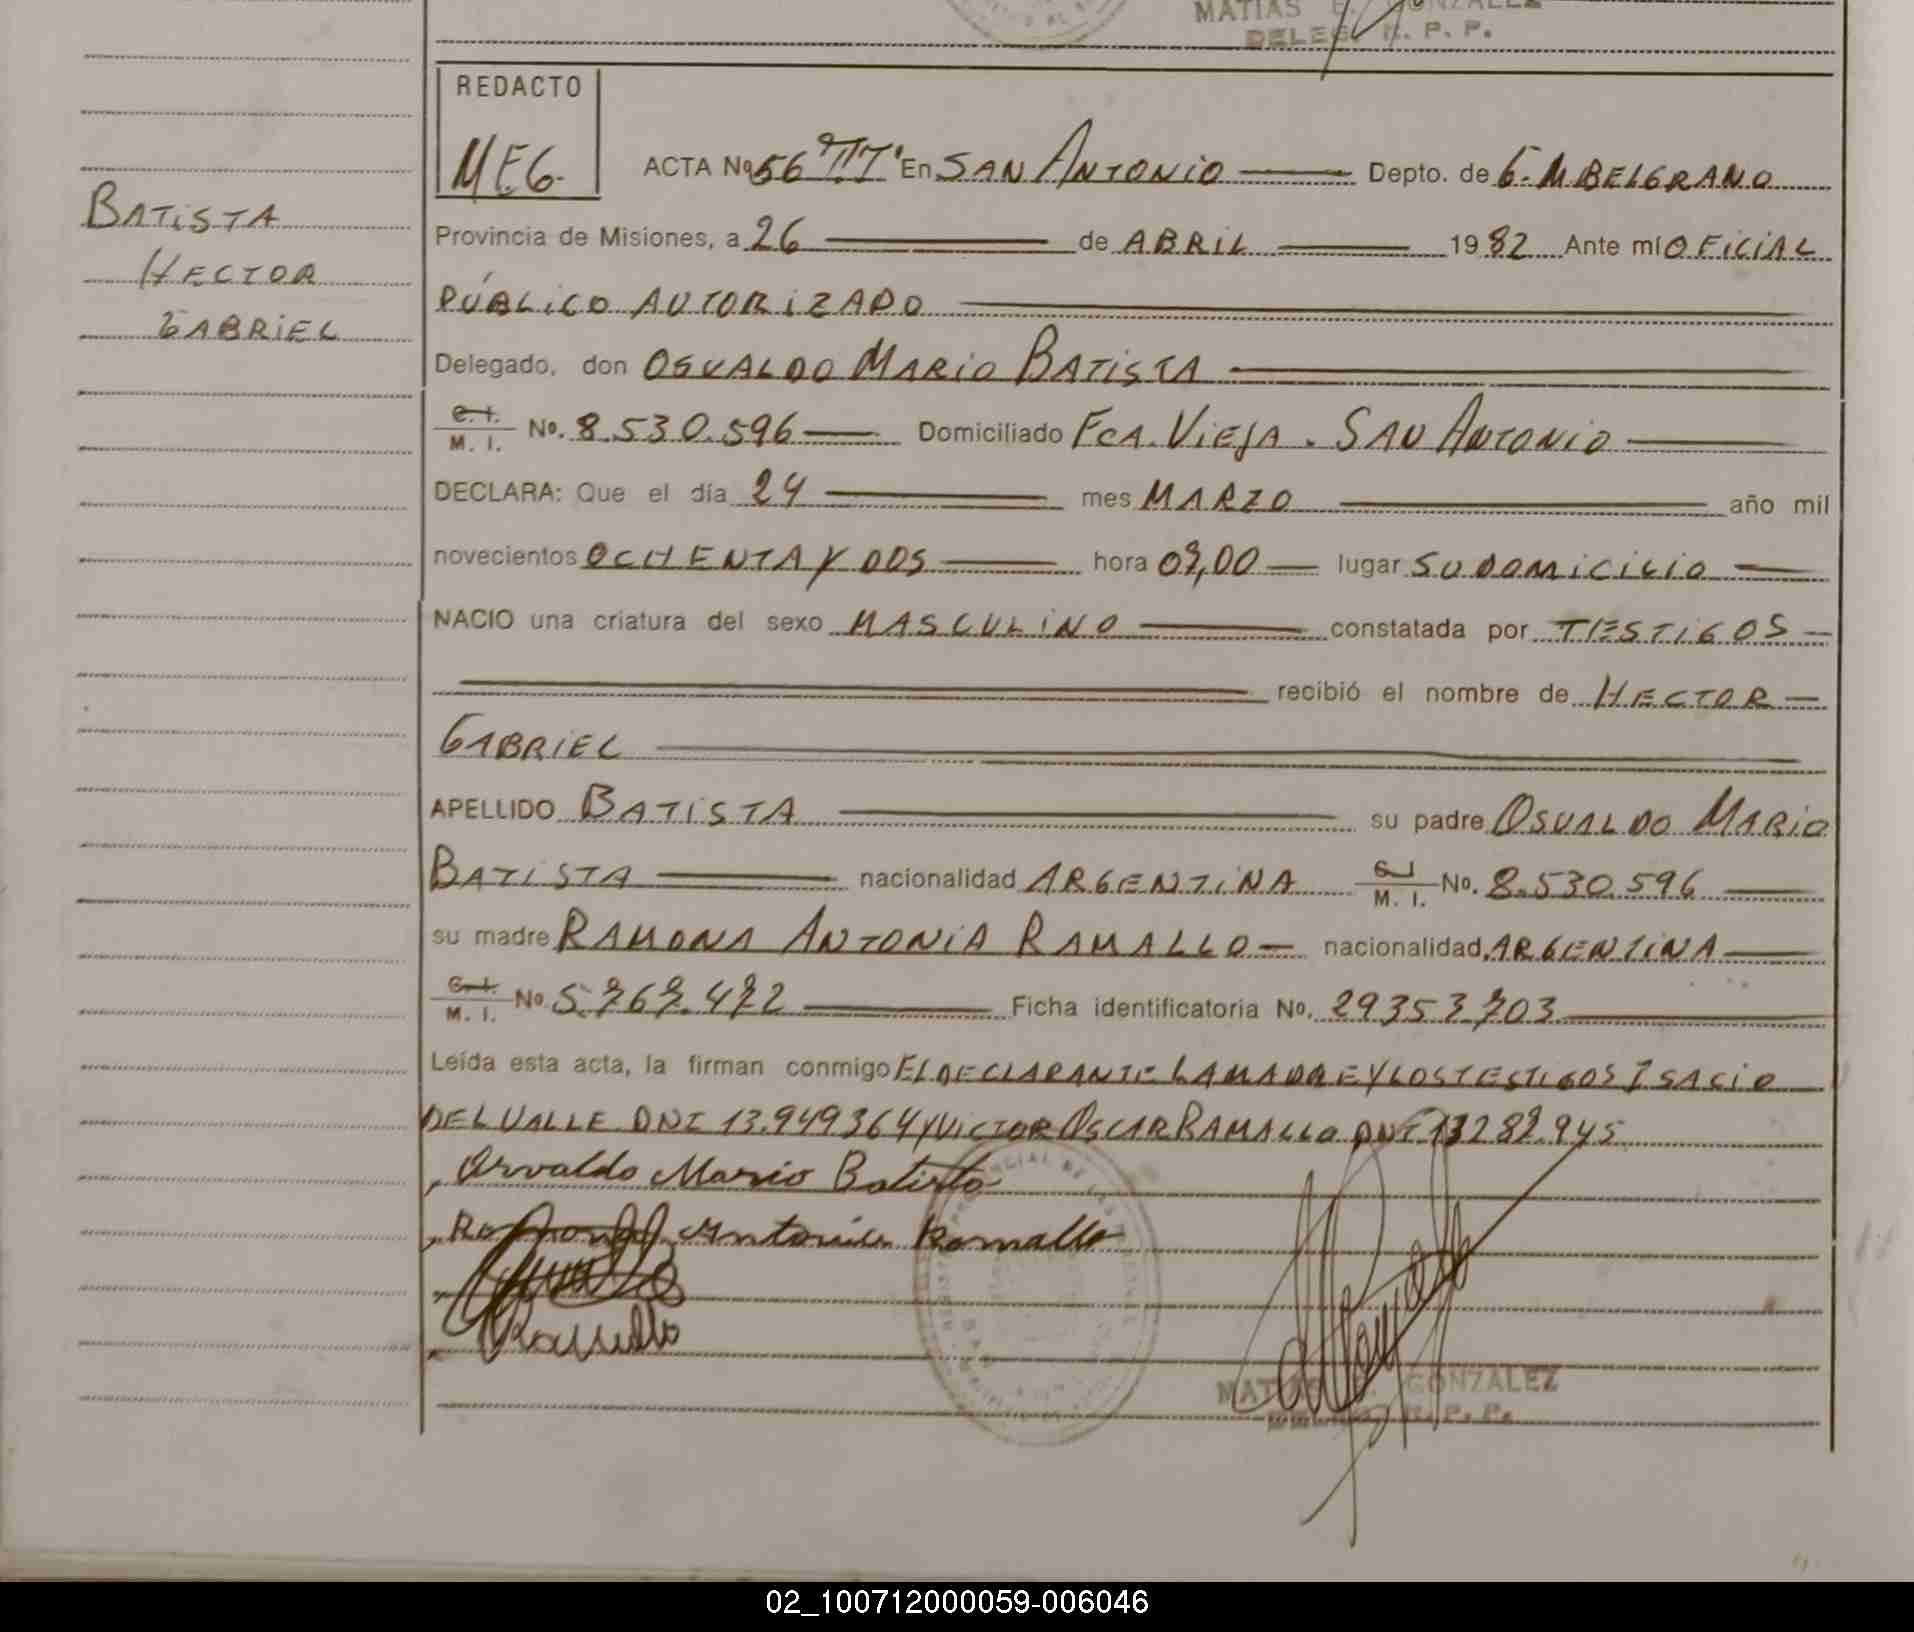 MATIAS E. GONZALEZ
DELEG. R. P. P.
REDACTO
M.E.G.
ACTA No 56 "TI" En SAN ANTONIO Depto. de G. M BELGRANO
BATISTA
HECTOR
GABRIEL
Provincia de Misiones, a 26 de ABRIL 1982 Ante mí OFICIAL
PÚBLICO AUTORIZADO
Delegado, don OSVALDO MARIO BATISTA
C. I.
M. I. No. 8.530.596 Domiciliado FCA. VIEJA. SAN ANTONIO
DECLARA: Que el día 24 mes MARZO año mil
novecientos OCHENTA Y DOS hora 09,00 lugar SU DOMICILIO
NACIO una criatura del sexo MASCULINO constatada por TESTIGOS
recibió el nombre de HECTOR
GABRIEL
APELLIDO BATISTA su padre OSVALDO MARIO
BATISTA nacionalidad ARGENTINA C. I. M. I. No. 8.530.596
su madre RAMONA ANTONIA RAMALLO nacionalidad ARGENTINA
C. I.
M. I. No 5.767.472 Ficha identificatoria No. 29353703
Leída esta acta, la firman conmigo EL DECLARANTE LA MADRE Y LOS TESTIGOS ISACIO
DEL VALLE DNI 13.949364 Y VICTOR OSCAR RAMALLO DNI 13282.945
Osvaldo Mario Batista
Ramona Antonia Ramallo
Ramallo
MATIAS E. GONZALEZ
DELEG. R. P. P.
02_100712000059-006046